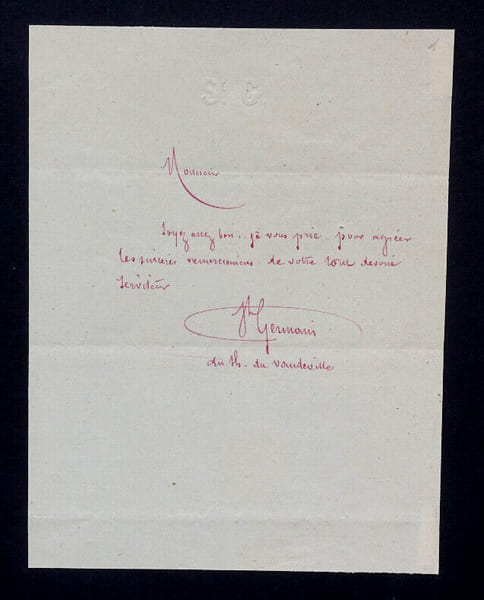 St G.
Monsieur
Soyez assez bon.. je vous prie pour agréer
les sincères remerciemens de votre tout dévoué
Serviteur
St Germain
du th. du Vaudeville